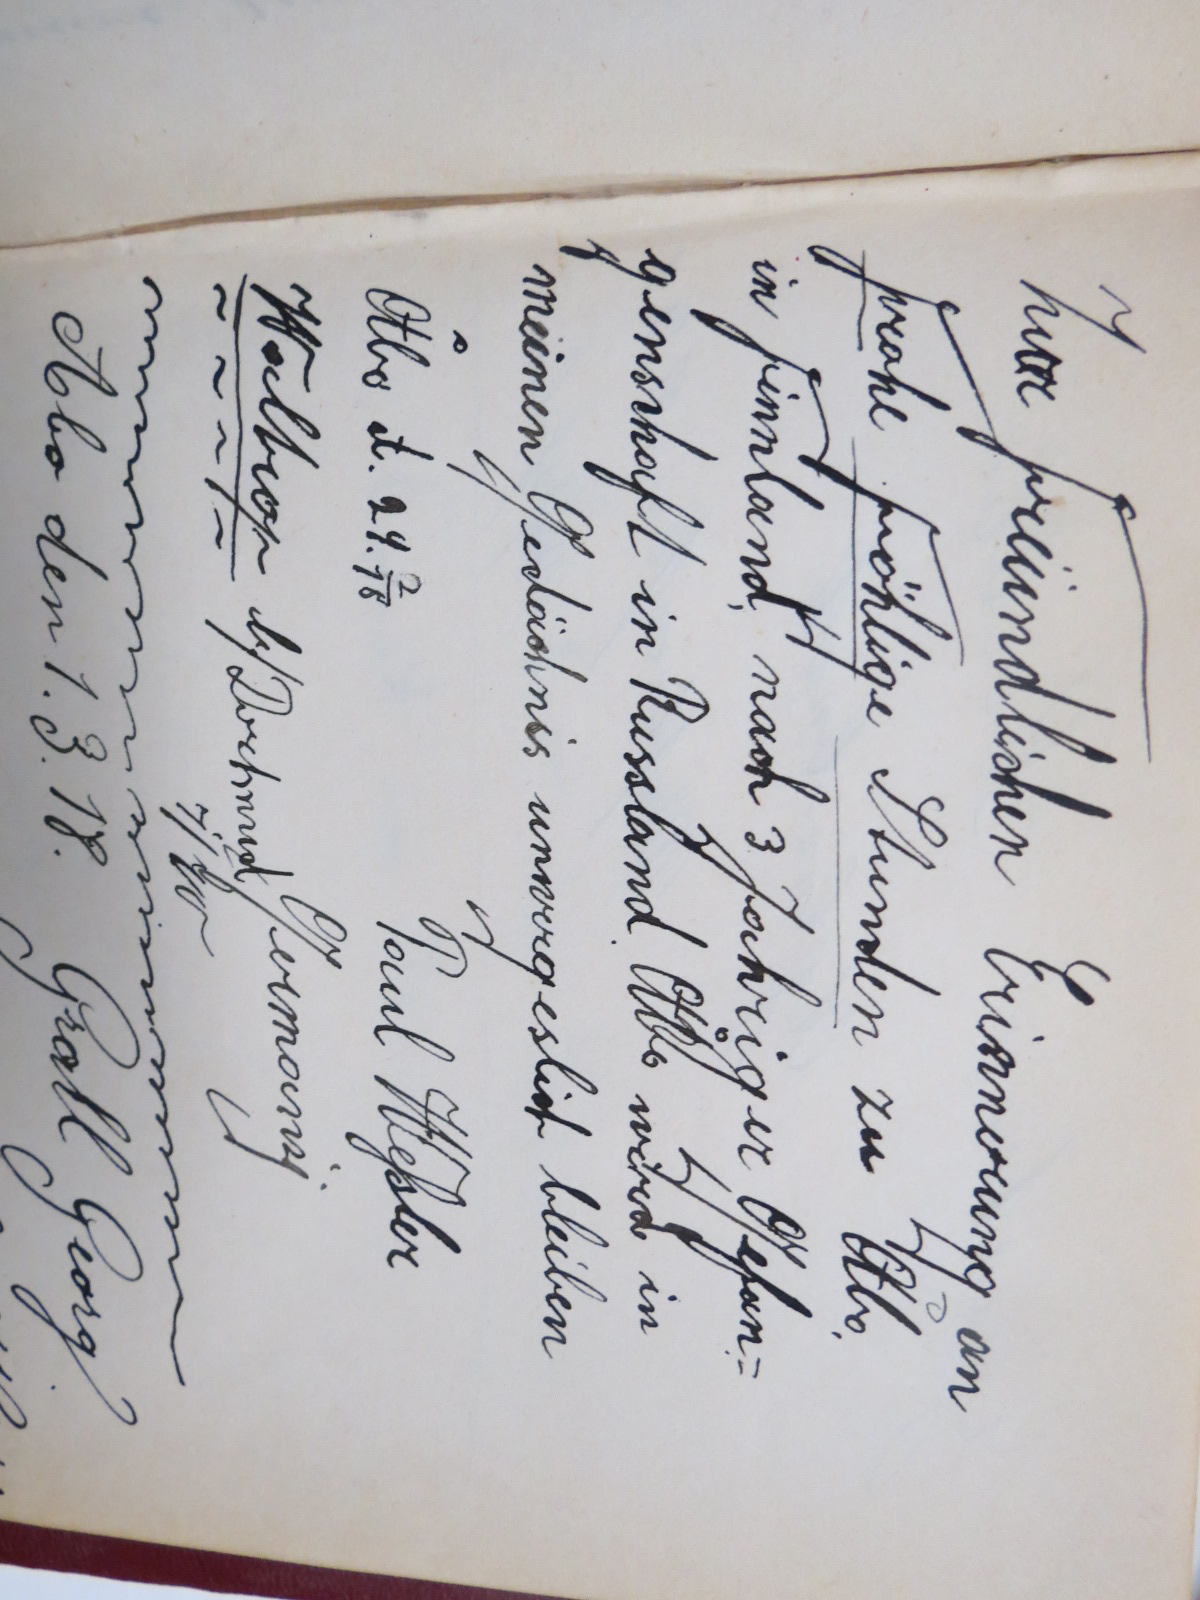 Zur freundlichen Erinnerung an
frohe fröhlige Stunden zu Åbo.
in Finnland, nach 3 Jahriger Gefan=
genschaft in Russland. Åbo wird in
meinen Gedächnis unvergeslich bleiben
Åbo d. 24. 2/18
Paul Weßler
b/ Dortmund Germany.
Abo den 1. 3. 18. Grall Georg